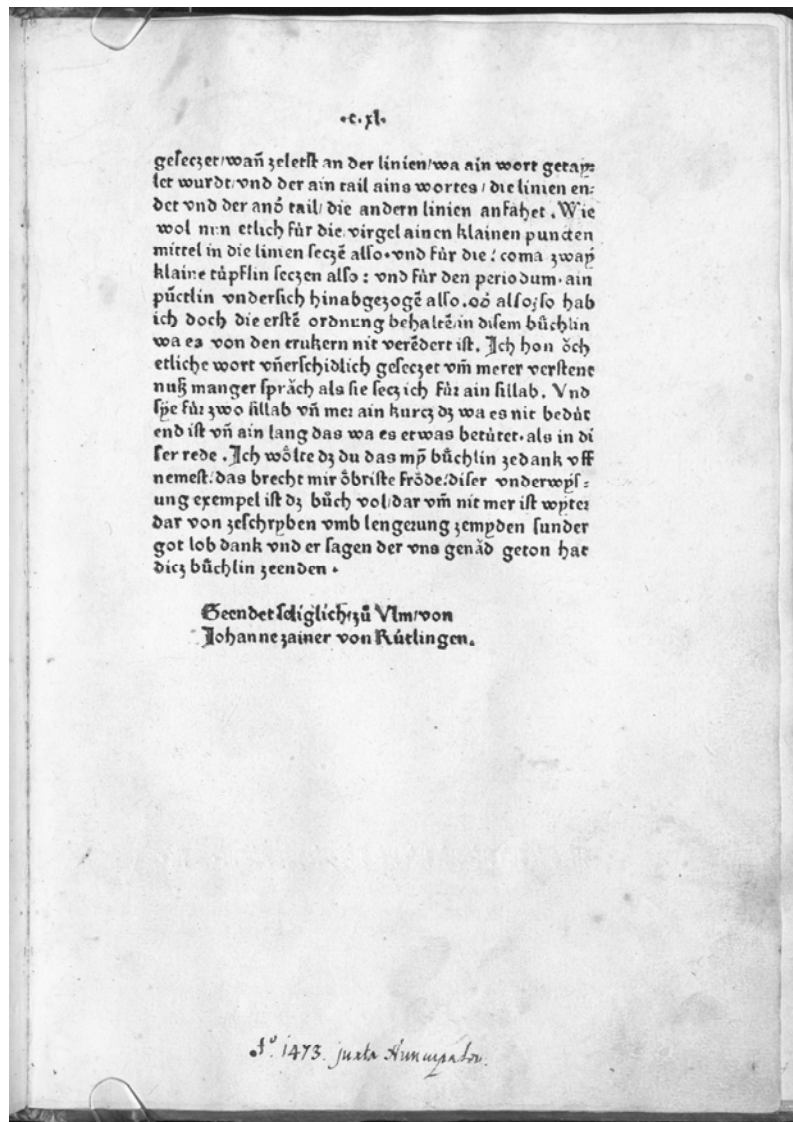 ·c·xl·
geseczet/wañ zeletst an der linien/wa ain wort getay⸗
let wurdt/vnd der ain tail ains wortes / die linien en⸗
det vnd der andˀ tail/ die andern linien anfahet . Wie
wol nun etlich fúr die virgel ainen klainen puncten
mittel in die linien seczē also·vnd fúr die ! coma zway
klaine túpflin seczen also : vnd fúr den periodum· ain
pūctlin vndersich hinabgezogē also.odˀ also;so hab
ich doch die erstē ordnung behaltē/in disem bůchlin
wa es von den trukern nit verēdert ist. Ich hon ǒch
etliche wort vñerschidlich geseczet vm̄ merer verstent
nuß manger sprǎch als sie secz ich fúr ain sillab. Vnd
sÿe fúr zwo sillab vñ mer ain kurcz dz wa es nit bedút
end ist vñ ain lang das wa es etwas betútet· als in di
ser rede . Ich wǒlte dz du das mÿ bůchlin zedank vff
nemest/das brecht mir ǒbriste frǒde/diser vnderwÿs⸗
ung exempel ist dz bůch vol/dar vm̄ nit mer ist wÿter
dar von zeschryben vmb lengerung zemyden sunder
got lob dank vnd er sagen der vns genǎd geton hat
dicz bůchlin zeenden ·
Geendet seliglich/zů Vlm/von
Johanne zainer von Rútlingen.
Aº. 1473. juxta